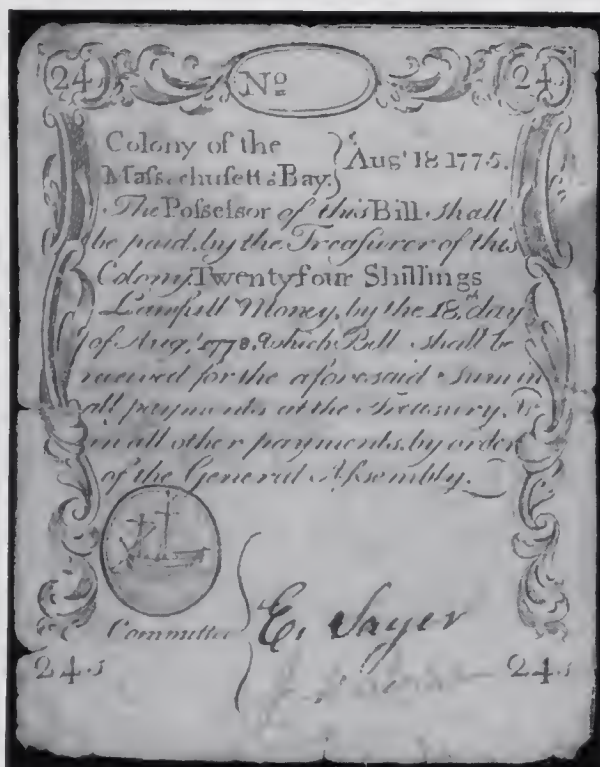 24 Nº 24s
Colony of the
Maſsachusetts Bay. } Augt 18 1775.
The Poſseſsor of this Bill shall
be paid, by the Treaſurer of this
Colony, Twentyfour Shillings
Lawfull Money, by the 18th day
of Augt 1778. which Bill shall be
received for the aforesaid Sum in
all payments at the Treasury, &
in all other payments, by order
of the General Aſsembly.
Committee
E. Sayer
24.s 24.s